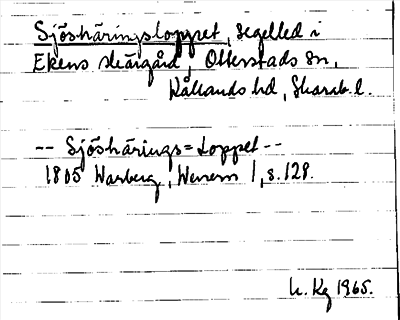 Sjöshäringsloppet, segelled i
Ekens skärgård, Otterstads sn,
Kållands hd, Skarab. l.
-- Sjöshärings=Loppet --
1805 Warberg, Wenern 1, s. 128.
h. Kg 1965.